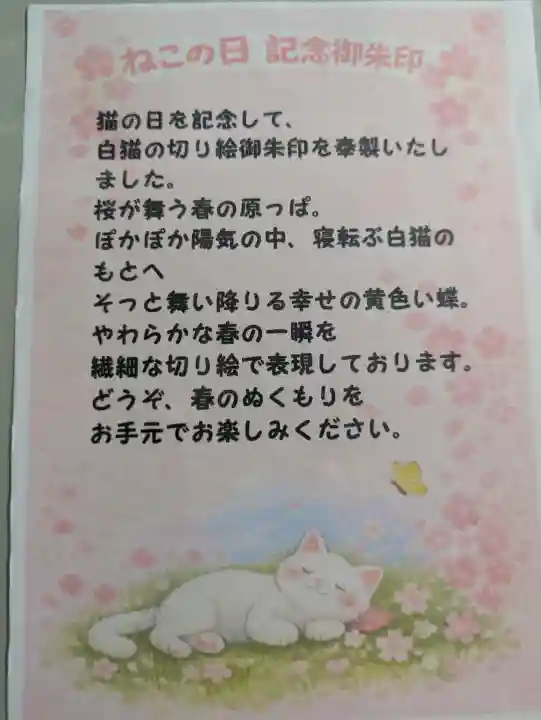 ねこの日 記念御朱印
猫の日を記念して、
白猫の切り絵御朱印を奉製いたし
ました。
桜が舞う春の原っぱ。
ぽかぽか陽気の中、寝転ぶ白猫の
もとへ
そっと舞い降りる幸せの黄色い蝶。
やわらかな春の一瞬を
繊細な切り絵で表現しております。
どうぞ、春のぬくもりを
お手元でお楽しみください。